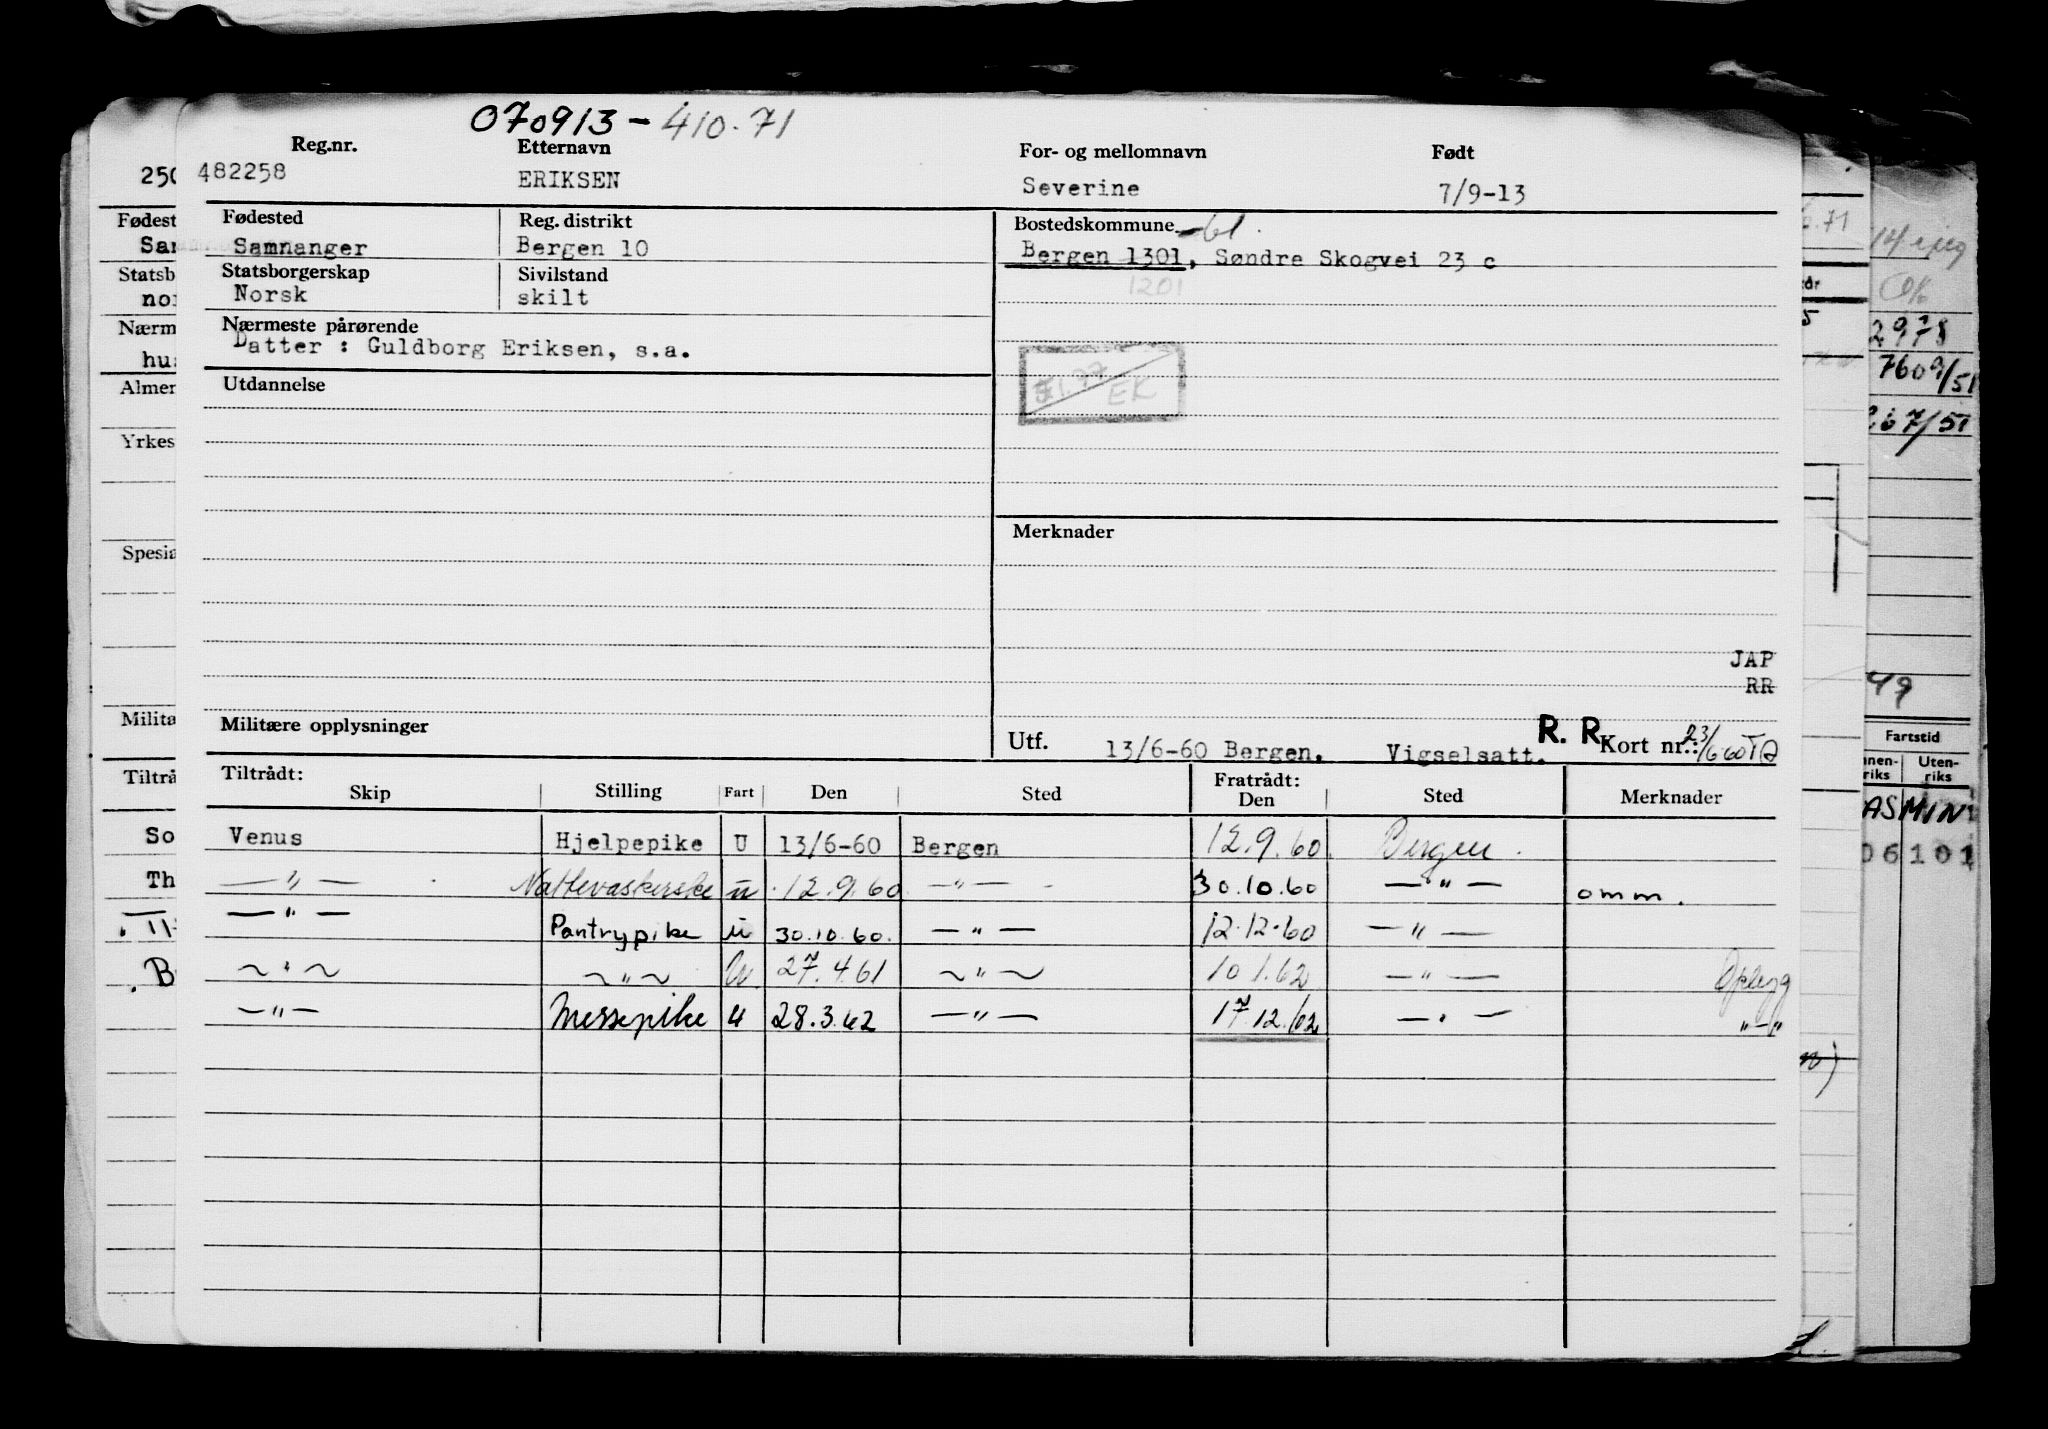 070913-410.71
Reg.nr. Etternavn For- og mellomnavn Født
482258 ERIKSEN Severine 7/9-13
Fødested Reg. distrikt Bostedskommune -61.
Samnanger Bergen 10 Bergen 1301, Søndre Skogvei 23 c
1201
Statsborgerskap Sivilstand
Norsk skilt
Nærmeste pårørende
Datter : Guldborg Eriksen, s.a.
EK
Utdannelse
Merknader
JAP
RR
Militære opplysninger
Utf. 13/6-60 Bergen. Vigselsatt. R. R. Kort nr.: 23/6-60 TA
Tiltrådt: Fratrådt:
Skip Stilling Fart Den Sted Den Sted Merknader
Venus Hjelpepike U 13/6-60 Bergen 12.9.60. Bergen.
—"— Nattevaskerske u 12.9.60. —"— 30.10.60 —"— omm.
—"— Pantrypike u 30.10.60. —"— 12.12.60 —"—
~"~ ~"~ U 27.4.61 ~"~ 10 1.62 —"— Oplegg
—"— Messepike u 28.3.62 —"— 17.12.62 —"— "-"
250
Fødest
Sam
Statsb
nor
Nærm
hus
Almen
Yrkes
Spesia
Milita
Tiltrå
So
Th
B
6.71
OK
2978
7609/51
267/51
49
Fartstid
Uten-
riks
riks
AS MIN
06 101